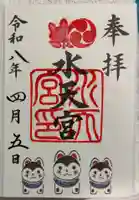 奉拝
水天宮
令和八年四月五日